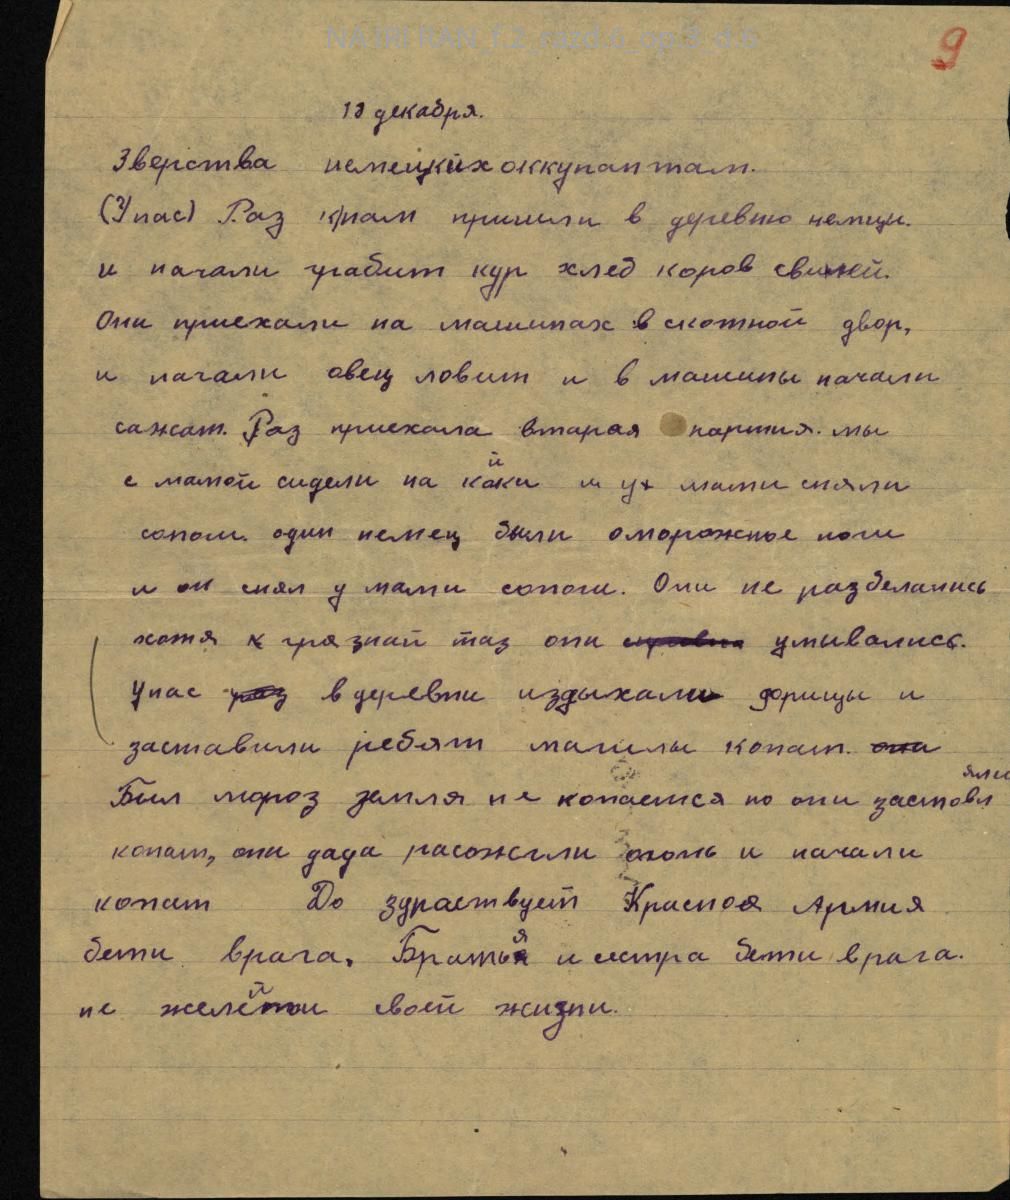 NA IRI RAN_f.2_razd.6_op.3_d.6
9
10 декабря.
Зверства немецких оккупантам.
(Унас) Раз к нам пришли в деревню немцы.
и начали грабит кур хлеб коров свиней.
Они приехали на машинах в скотной двор,
и начали овец ловит и в машины начали
сажат. Раз приехала вторая партия. мы
с мамой сидели на койки и у мами сняли
сопоги. один немец были оморожное ноги
и он снял у мами сопоги. Они не разбелались
хотя к грязнай таз они умивались.
Унас в деревни издыхали фрицы и
заставили ребят магилы копат. они
Бил мороз земля не копается но они застовляли
копат, они дада расожгли огонь и начали
копат До здраствует Красноя Армия
бети врага. Братья и сестра бети врага.
не желейти своей жизни.